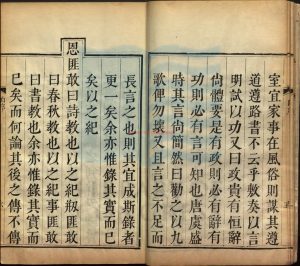 室宜家事在風俗則謀其遵
道遵路書不云乎敷奏以言
明試以功又曰政貴有恒辭
尙體要是有政則必有辭有
功則必有言可知也唐虞盛
時其言尙簡然曰勸之以九
歌俾勿壞又且言之不足而
長言之也則其宜成斯錄者
更一矣余亦惟錄其實而巳
矣以之紀
恩匪敢曰詩敎也以之紀匪敢
曰春秋敎也以之紀事匪敢
曰書敎也余亦惟錄其實而
巳矣而何論其後之傳不傳